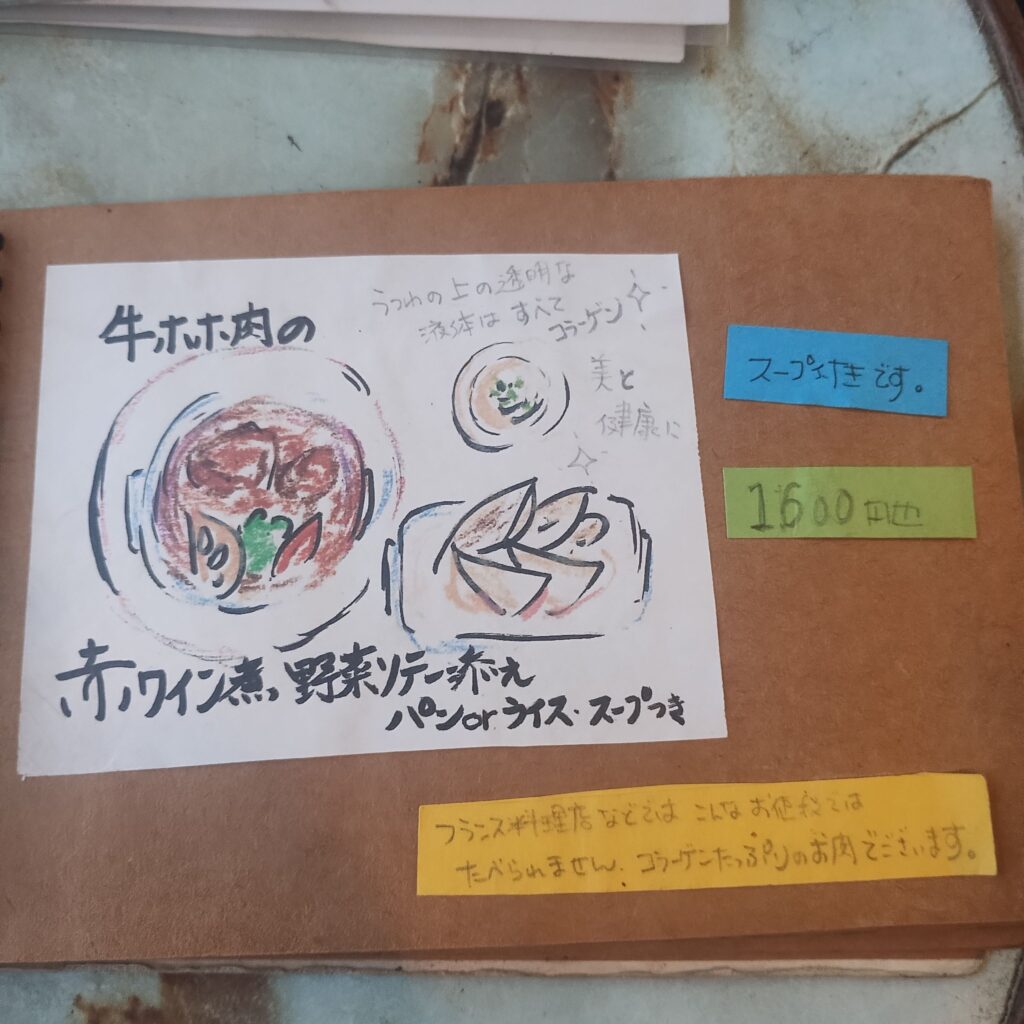 牛ホホ肉の
うつわの上の透明な
液体は すべて
コラーゲン
美と
健康に
赤ワイン煮、野菜ソテー添え
パン or ライス・スープつき
スープ付きです。
1600円也
フランス料理店などでは こんな お値段では
たべられません、コラーゲンたっぷりのお肉でございます。